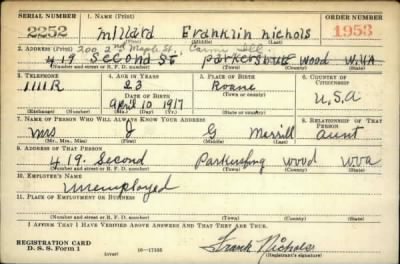 SERIAL NUMBER 1. NAME (Print) ORDER NUMBER
2252 Millard Franklin Nichols 1953
(First) (Middle) (Last)
2. ADDRESS (Print) 200 2nd Maple St., Carmi Ill.
419 Second St Parkersburg Wood W.VA
(Number and street or R. F. D. number) (Town) (County) (State)
3. TELEPHONE 4. AGE IN YEARS 5. PLACE OF BIRTH 6. COUNTRY OF CITIZENSHIP
1111R 23 Roane
DATE OF BIRTH
April 10 1917 U.S.A
(Exchange) (Number) (Mo.) (Day) (Yr.) (Town or county) (State or country)
7. NAME OF PERSON WHO WILL ALWAYS KNOW YOUR ADDRESS 8. RELATIONSHIP OF THAT PERSON
Mrs J G Merrill Aunt
(Mr., Mrs., Miss) (First) (Middle) (Last)
9. ADDRESS OF THAT PERSON
419 Second Parkersburg Wood Wva
(Number and street or R. F. D. number) (Town) (County) (State)
10. EMPLOYER'S NAME
Unemployed
11. PLACE OF EMPLOYMENT OR BUSINESS
(Number and street or R. F. D. number) (Town) (County) (State)
I AFFIRM THAT I HAVE VERIFIED ABOVE ANSWERS AND THAT THEY ARE TRUE.
REGISTRATION CARD
D. S. S. Form 1 (over) 16—17105 Frank Nichols
(Registrant's signature)